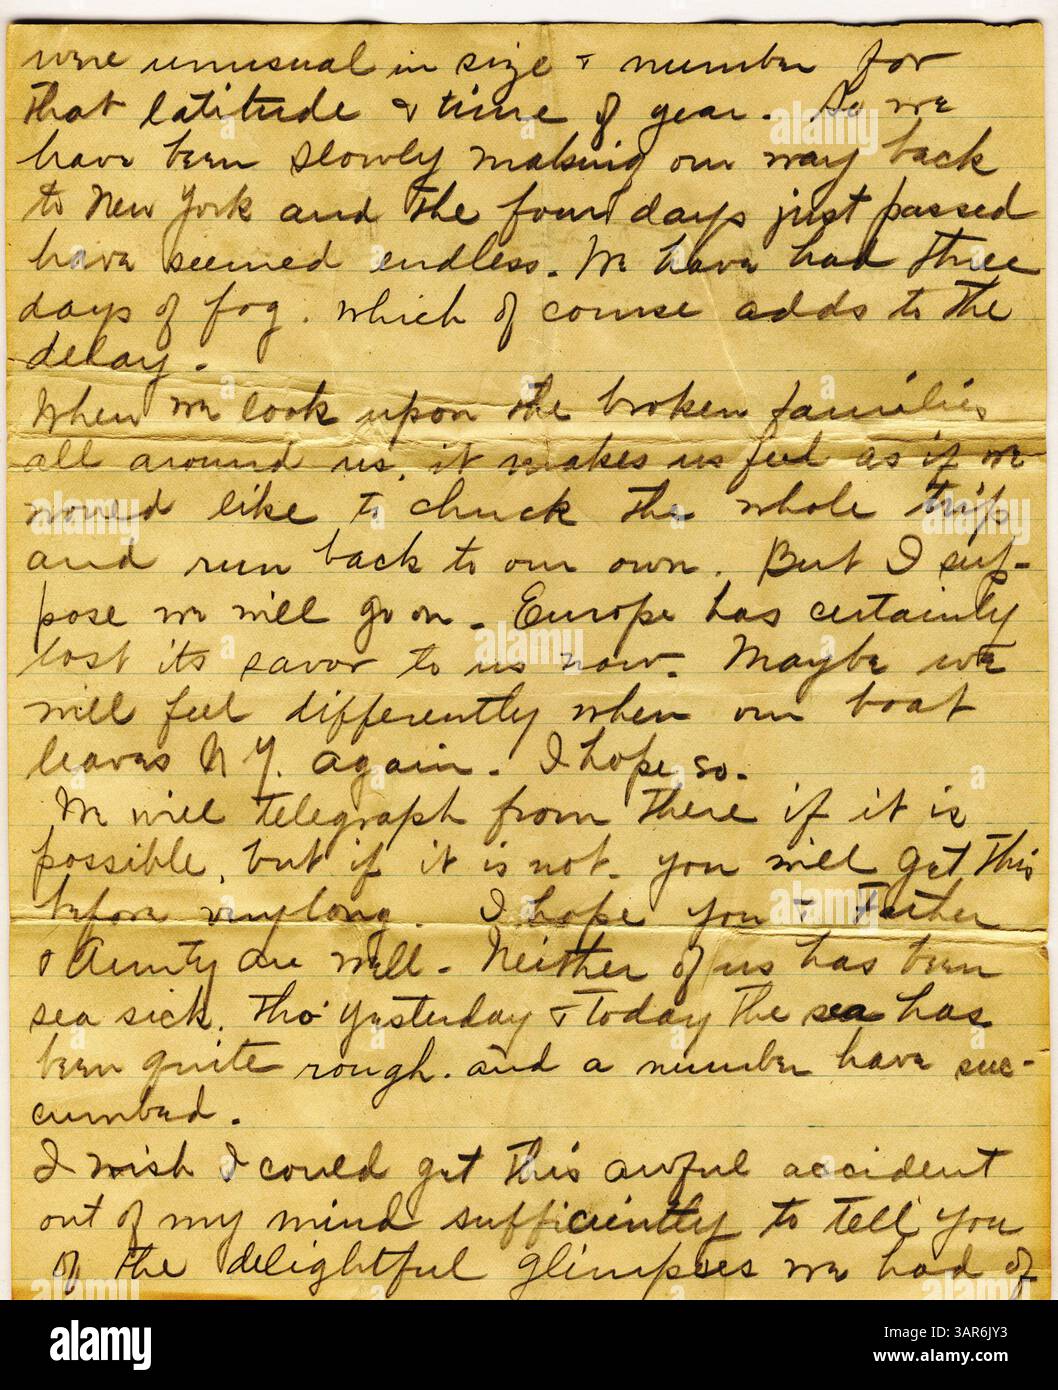 were unusual in size & number for
that latitude & time of year. So we
have been slowly making our way back
to New York and the four days just passed
have seemed endless. We have had three
days of fog. which of course adds to the
delay.
When we look upon the broken families
all around us, it makes us feel as if we
would like to chuck the whole trip
and run back to our own. But I sup-
pose we will go on. Europe has certainly
lost its savor to us now. Maybe we
will feel differently when our boat
leaves N Y. again. I hope so.
We will telegraph from there if it is
possible, but if it is not. you will get this
before very long. I hope you & Father
& Aunty are well. Neither of us has been
sea sick. tho' yesterday & today the sea has
been quite rough. and a number have suc-
cumbed.
I wish I could get this awful accident
out of my mind sufficiently to tell you
of the delightful glimpses we had of
alamy
Image ID: 3AR6JY3
www.alamy.com